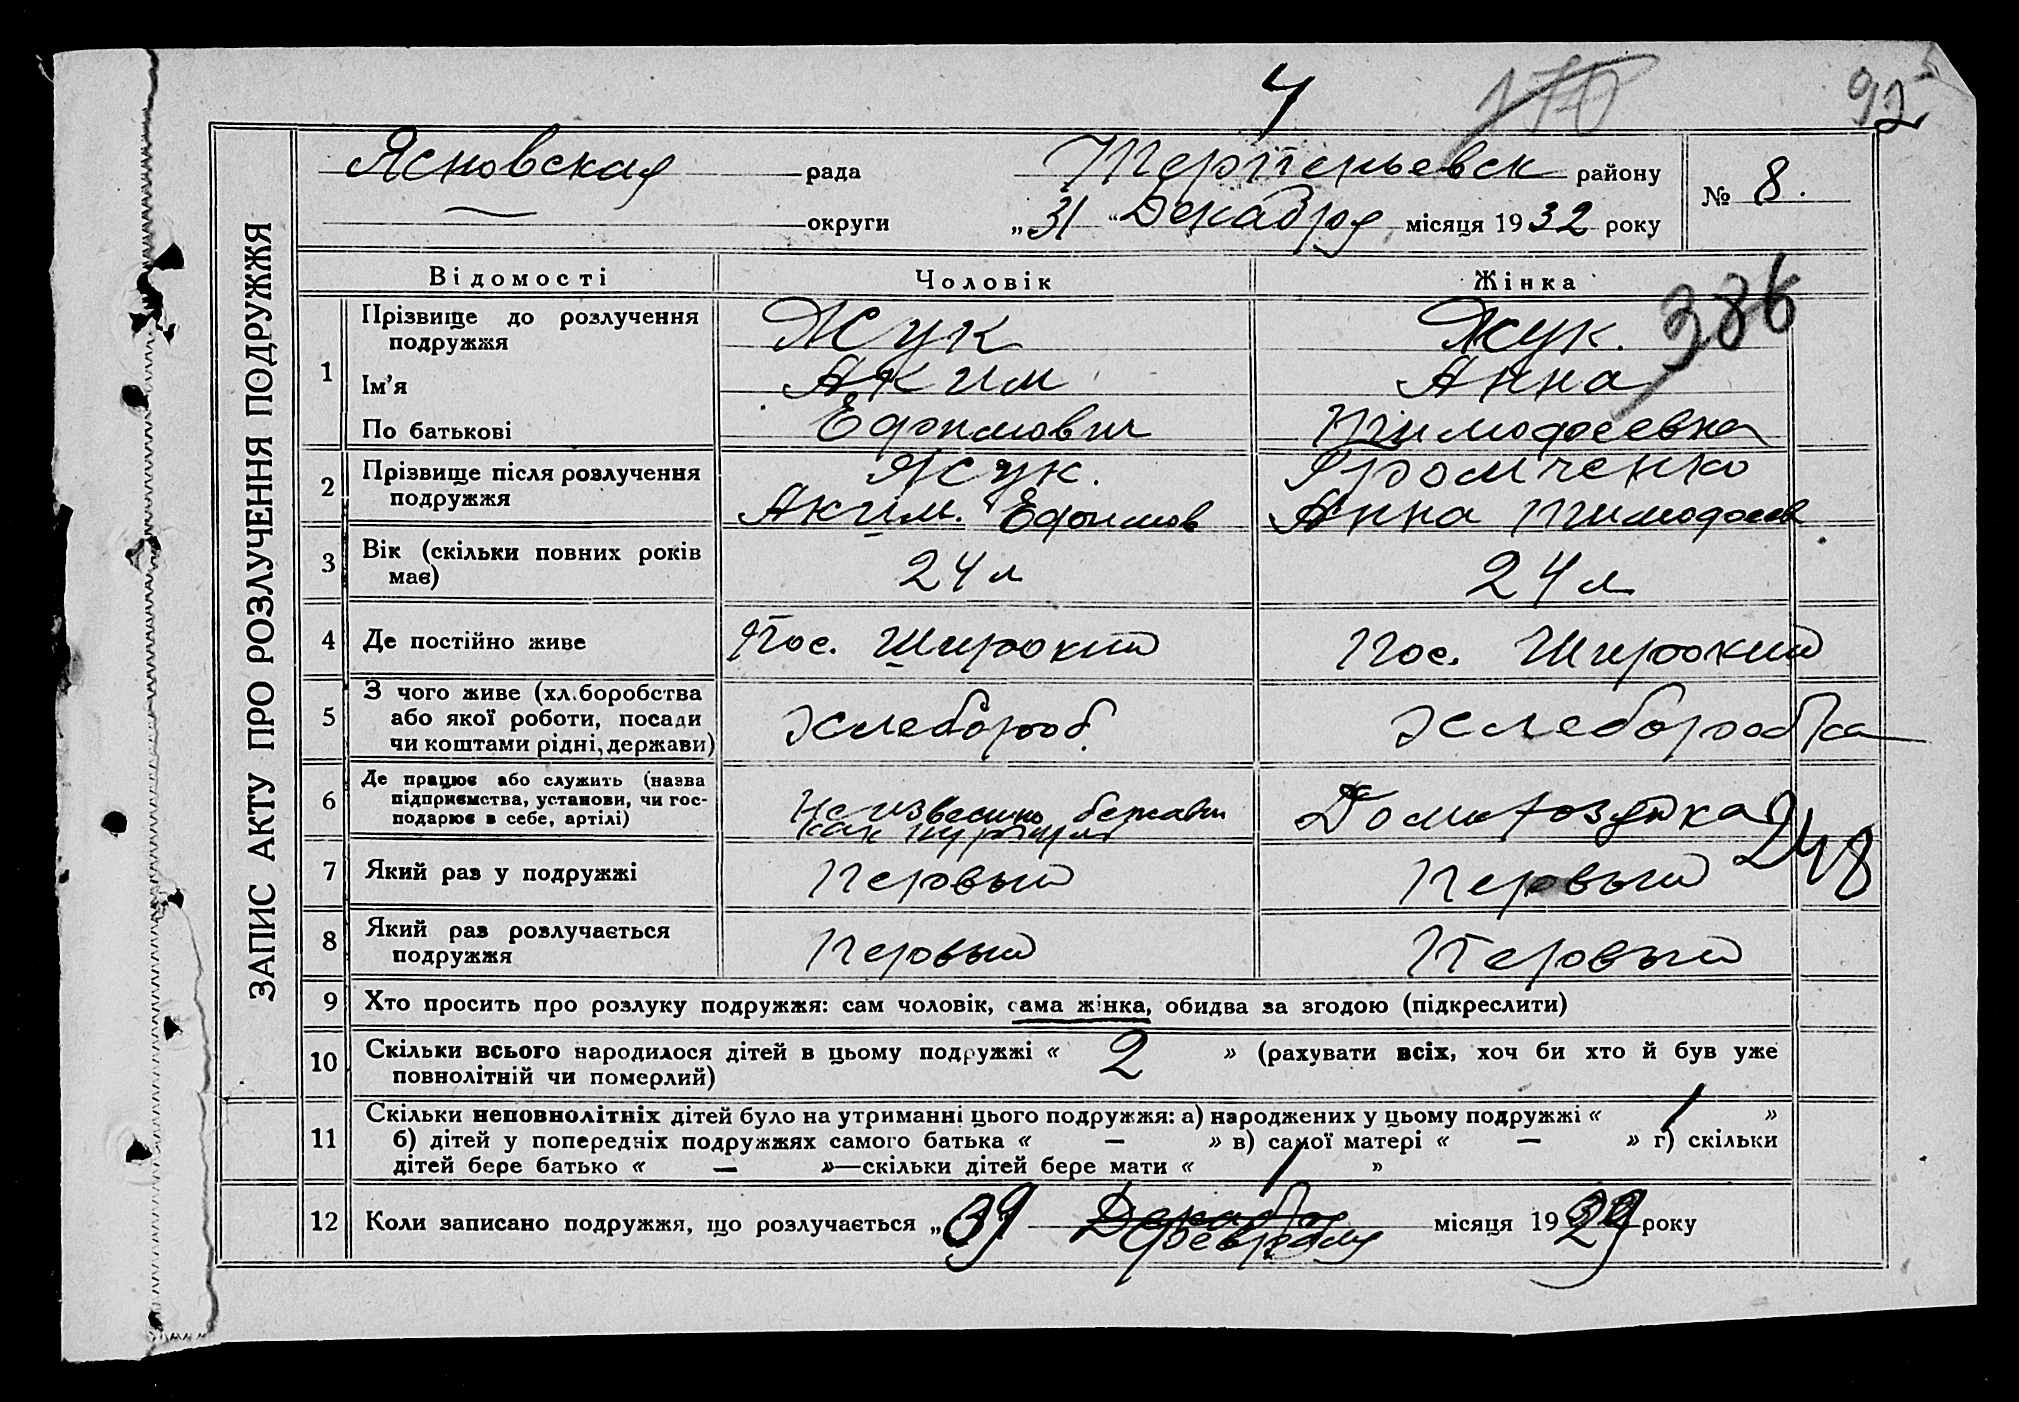 4 170 92
ЗАПИС АКТУ ПРО РОЗЛУЧЕННЯ ПОДРУЖЖЯ
Ясновская рада Терпеньевск району № 8.
округи „31 " Декабря місяця 1932 року
Відомості Чоловік Жінка
386
1 Прізвище до розлучення подружжя Жук Жук.
Ім'я Аким Анна
По батькові Ефимович Тимофеевна
2 Прізвище після розлучення Жук. Громченко
подружжя Аким. Ефимов Анна Тимофеев
3 Вік (скільки повних років 24 л 24 л
має)
4 Де постійно живе Пос. Широкий Пос. Широкий
5 З чого живе (хл.боробства
або якої роботи, посади Хлебороб. Хлеборобка
чи коштами рідні, держави)
6 Де працює або служить (назва
підприємства, установи, чи гос- Неизвестно Домохозяйка
подарює в себе, артілі) как
248
7 Який раз у подружжі Первый Первый
8 Який раз розлучається Первый Первый
подружжя
9 Хто просить про розлуку подружжя: сам чоловік, сама жінка, обидва за згодою (підкреслити)
10 Скільки всього народилося дітей в цьому подружжі « 2 » (рахувати всіх, хоч би хто й був уже
повнолітній чи померлий)
11 Скільки неповнолітніх дітей було на утриманні цього подружжя: а) народжених у цьому подружжі « 1 »
б) дітей у попередніх подружжях самого батька « — » в) самої матері « — » г) скільки
дітей бере батько « — »—скільки дітей бере мати « 1 »
12 Коли записано подружжя, що розлучається „ Декабря місяця 1929 року
Февраля